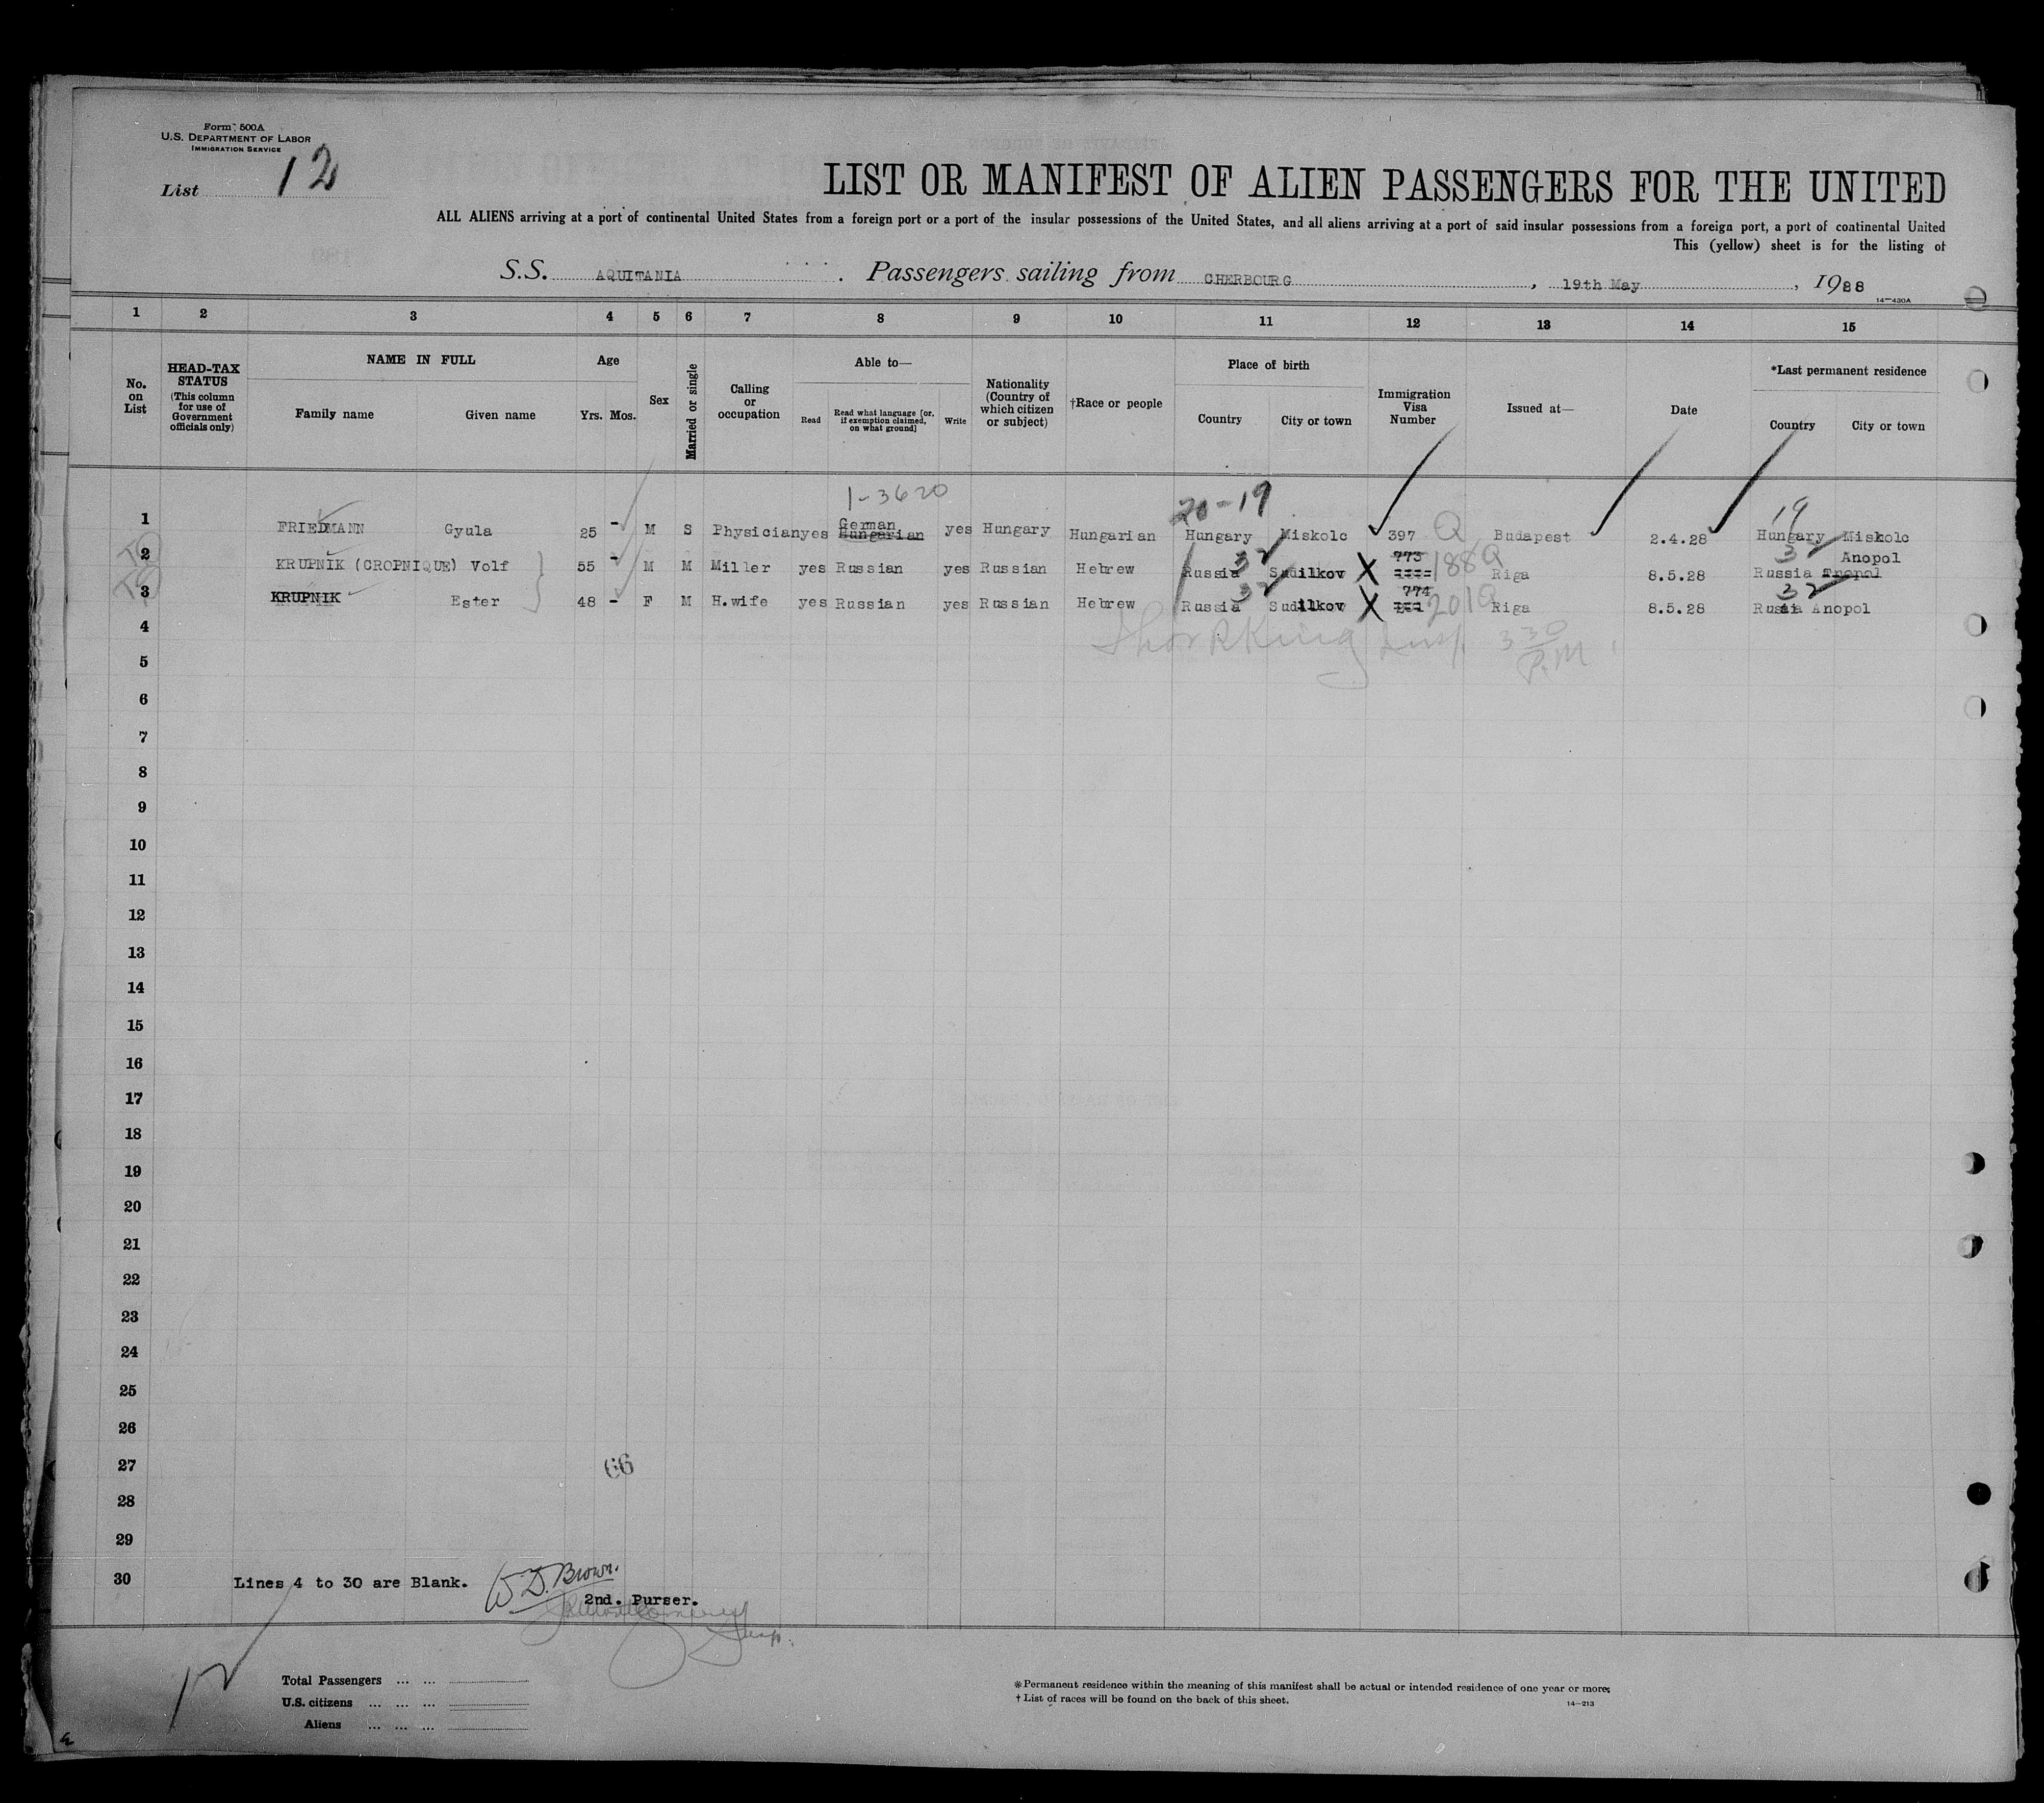 Form 500A
U.S. DEPARTMENT OF LABOR
IMMIGRATION SERVICE
List 12
LIST OR MANIFEST OF ALIEN PASSENGERS FOR THE UNITED
ALL ALIENS arriving at a port of continental United States from a foreign port or a port of the insular possessions of the United States, and all aliens arriving at a port of said insular possessions from a foreign port, a port of continental United
This (yellow) sheet is for the listing of
S.S. AQUITANIA Passengers sailing from CHERBOURG, 19th May, 1928
14—430A
1 2 3 4 5 6 7 8 9 10 11 12 13 14 15
No. on List
HEAD-TAX STATUS (This column for use of Government officials only)
NAME IN FULL
Family name Given name
Age
Yrs. Mos.
Sex
Married or single
Calling or occupation
Able to—
Read
Read what language [or, if exemption claimed, on what ground]
Write
Nationality (Country of which citizen or subject)
†Race or people
Place of birth
Country City or town
Immigration Visa Number
Issued at—
Date
*Last permanent residence
Country City or town
1-3620 20-19 19
German
1 FRIEDMANN Gyula 25 - M S Physician yes Hungarian yes Hungary Hungarian Hungary Miskolc 397 Q Budapest 2.4.28 Hungary Miskolc
773 32 Anopol
2 KRUPNIK (CROPNIQUE) Volf 55 - M M Miller yes Russian yes Russian Hebrew Russia 32 Sudilkov 188Q Riga 8.5.28 Russia
774 32
3 KRUPNIK Ester 48 - F M H.wife yes Russian yes Russian Hebrew Russia 32 Sudilkov 201Q Riga 8.5.28 Russia Anopol
4
330 P.M.
5
6
7
8
9
10
11
12
13
14
15
16
17
18
19
20
21
22
23
24
25
26
27
66
28
29
30 Lines 4 to 30 are Blank. W.D. Brown.
2nd. Purser.
Insp.
12
Total Passengers
U.S. citizens
Aliens
*Permanent residence within the meaning of this manifest shall be actual or intended residence of one year or more.
† List of races will be found on the back of this sheet.
14—213